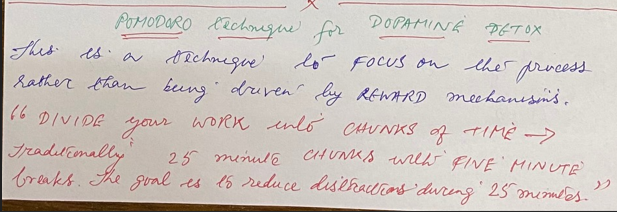 POMODORO technique for DOPAMINE DETOX
This is a technique to FOCUS on the process
rather than being driven by REWARD mechanisms.
“ DIVIDE your WORK into CHUNKS of TIME →
Traditionally 25 minute CHUNKS with FINE MINUTE
breaks. The goal is to reduce distractions during 25 minutes.”